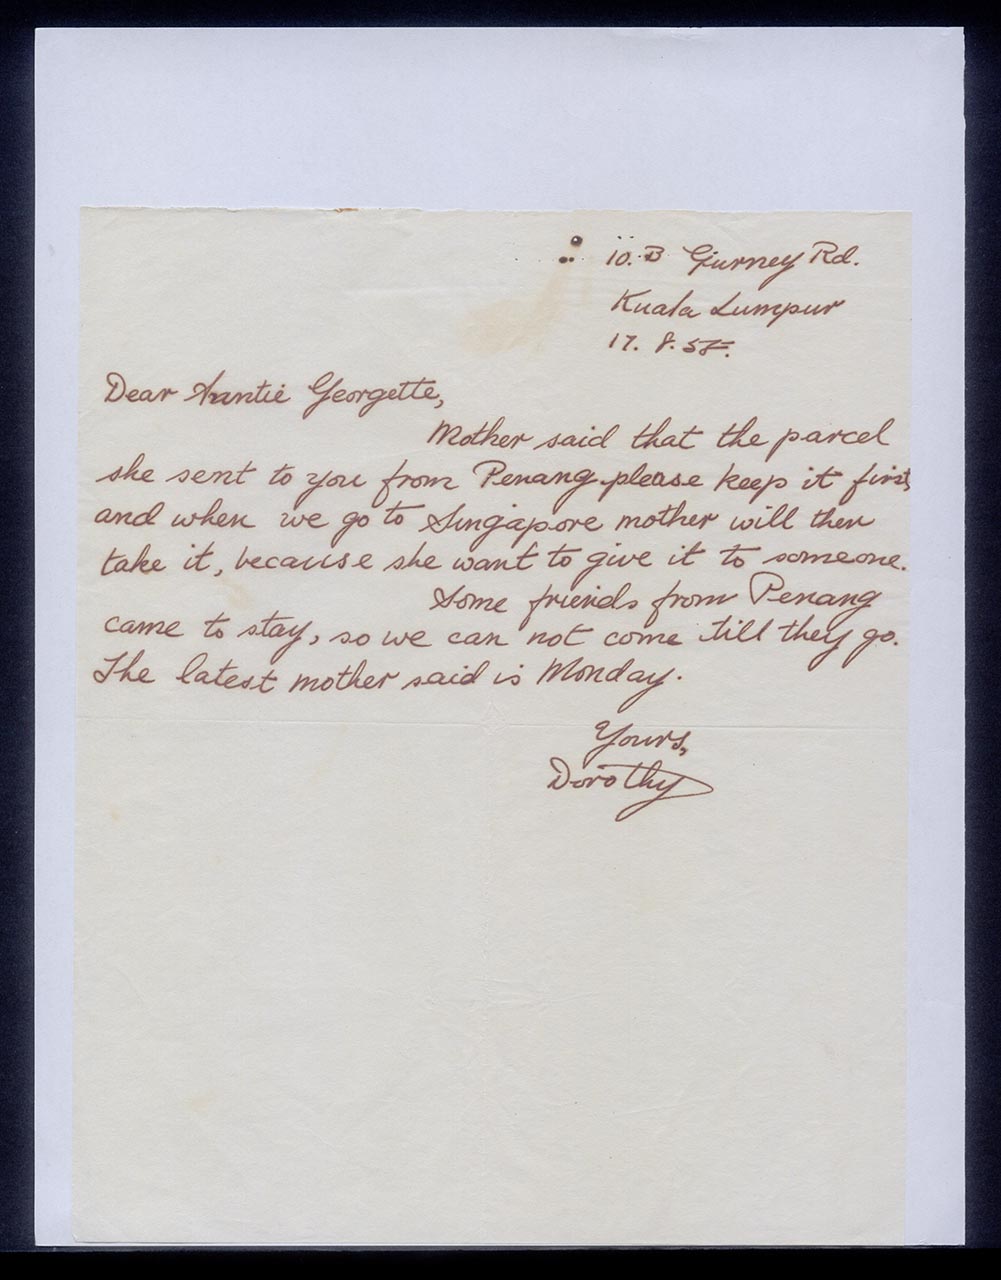 10. B Gurney Rd.
Kuala Lumpur
17. 8. 58.
Dear Auntie Georgette,
Mother said that the parcel
she sent to you from Penang please keep it first,
and when we go to Singapore mother will then
take it, because she want to give it to someone.
Some friends from Penang
came to stay, so we can not come till they go.
The latest mother said is Monday.
Yours,
Dorothy